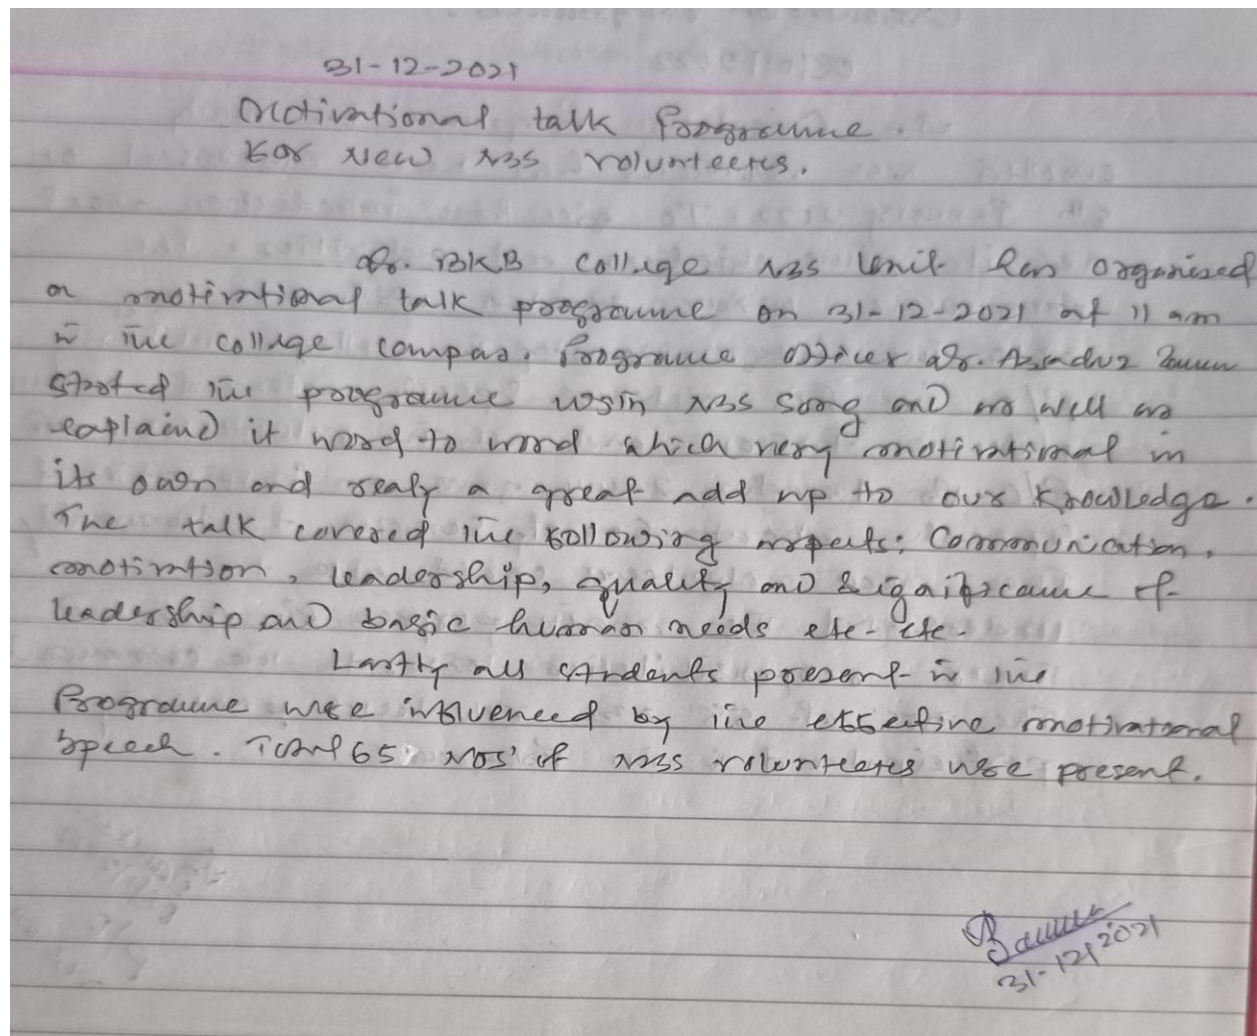 31-12-2021
Motivational talk Programme.
For New NSS volunteers.
Dr. BKB College NSS Unit has organised
a motivational talk programme on 31-12-2021 at 11 am
in the college compas. Programme Officer Dr. Asaduz Zaman
started the programme wsin NSS Song and as well as
explaind it word to word which very motivational in
its own and realy a great add up to our knowledge.
The talk covered the following aspects: Communication,
motivation, leadership, quality and significance of
leadership and basic human needs etc-etc-
Lastly all students present in the
Programme were influenced by the effective motivational
speech. Total 65 Nos' of NSS volunteers were present.
31-12/2021